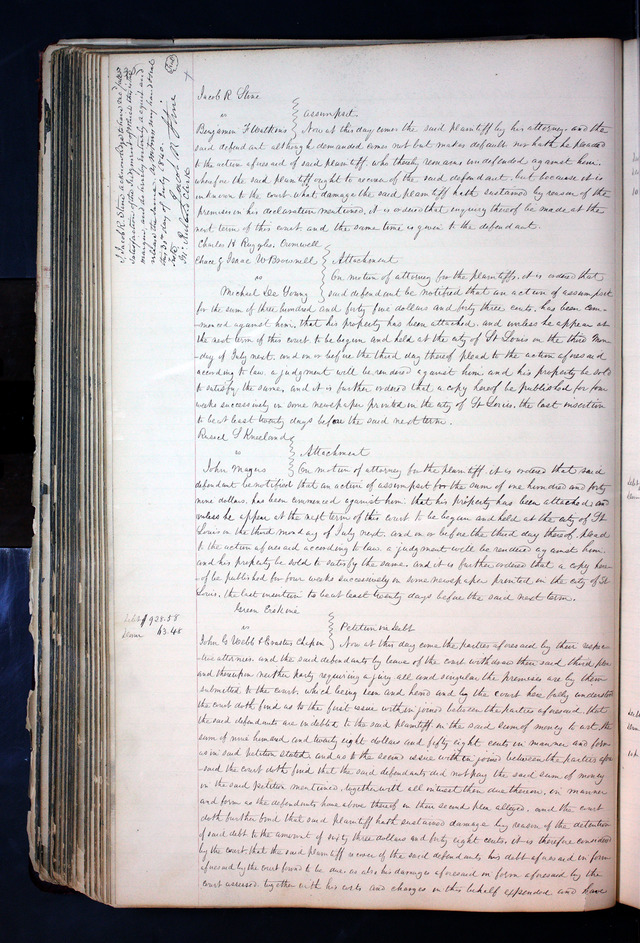 Jacob R. Stine
vs
assumpsit
Benjamin F Watkins
Now at this day comes the said plaintiff by his attorney and the
said defendant although he demanded comes not but makes default nor hath he pleaded
to the action aforesaid of said plaintiff who thereby remains undefended against him.
wherefore the said plaintiff ought to recover of the said defendant. but because it is
unknown to the court what damage the said plaintiff hath sustained by reason of the
premises in his declaration mentioned, it is ordered that enquiry thereof be made at the
next term of this court and the same time is given to the defendant.
Charles H Ruggles, Cromwell
Chace & Isaac W Brownell
Attachment
vs
On motion of attorney for the plaintiffs, it is ordered that
Michael De Young
said defendant be notified that an action of assumpsit
for the sum of three hundred and forty five dollars and forty three cents, has been com-
-menced against him, that his property has been attached, and unless he appear at
the next term of this court to be begun and held at the city of St Louis on the third Mon-
-day of July next, and on or before the third day thereof plead to the action aforesaid
according to law a judgment will be rendered against him and his property be sold
to satisfy the same, and it is further ordered that a copy hereof be published for four
weeks successively in some newspaper printed in the city of St Louis, the last insertion
to be at least twenty days before the said next term.
Kneeland
vs
Attachment
John Magus
On motion of attorney for the plaintiff it is ordered that said
defendant be notified that an action of assumpsit for the sum of one hundred and forty
nine dollars, has been commenced against him that his property has been attached, and
unless he appear at the next term of this court to be begun and held at the city of St
Louis on the third monday of July next, and on or before the third day thereof, plead
to the action aforesaid according to law a judgment will be rendered against him
and his property be sold to satisfy the same, and it is further ordered that a copy here
-of be published for four weeks successively in some newspaper printed in the city of St
Louis, the last insertion to be at least twenty days before the said next term.
Green Erskine
debt $928.58
vs
Petition in debt
Dam 63.48
John G Webb & Chapin
Now at this day come the parties aforesaid by their respec
-tive attornies and the said defendants by leave of the court withdraw their said third plea
and thereupon neither party requiring a jury all and singular the premises are by them
submitted to the court, which being seen and heard and by the court here fully understood
the court doth find as to the first issue within joined between the parties aforesaid, that
the said defendants are indebted to the said plaintiff in the said sum of money to wit, the
sum of nine hundred and twenty eight dollars and fifty eight cents in manner and form
as in said petition stated, and as to the second issue within joined between the parties afore
-said the court doth find that the said defendants did not pay the said sum of money
in the said petition mentioned together with all interest then due thereon, in manner
and form as the defendants have above thereof in their second plea alleged. and the court
doth further find that said plaintiff hath sustained damage by reason of the detention
of said debt to the amount of sixty three dollars and forty eight cents, it is therefore considered
by the court that the said plaintiff recover of the said defendants his debt aforesaid in form
aforesaid by the court found to be due, as also his damages aforesaid in form aforesaid by the
court assessed together with his costs and charges in this behalf expended and have
I, Jacob R. Stine acknowledge to have recd full
satisfaction of the Judgment of which this is the
margin and do hereby entirely acquit and
release the same. As witness my hand this
30th day of July 1840.
Jacob R Stine
Teste
Jn Ruland Clerk